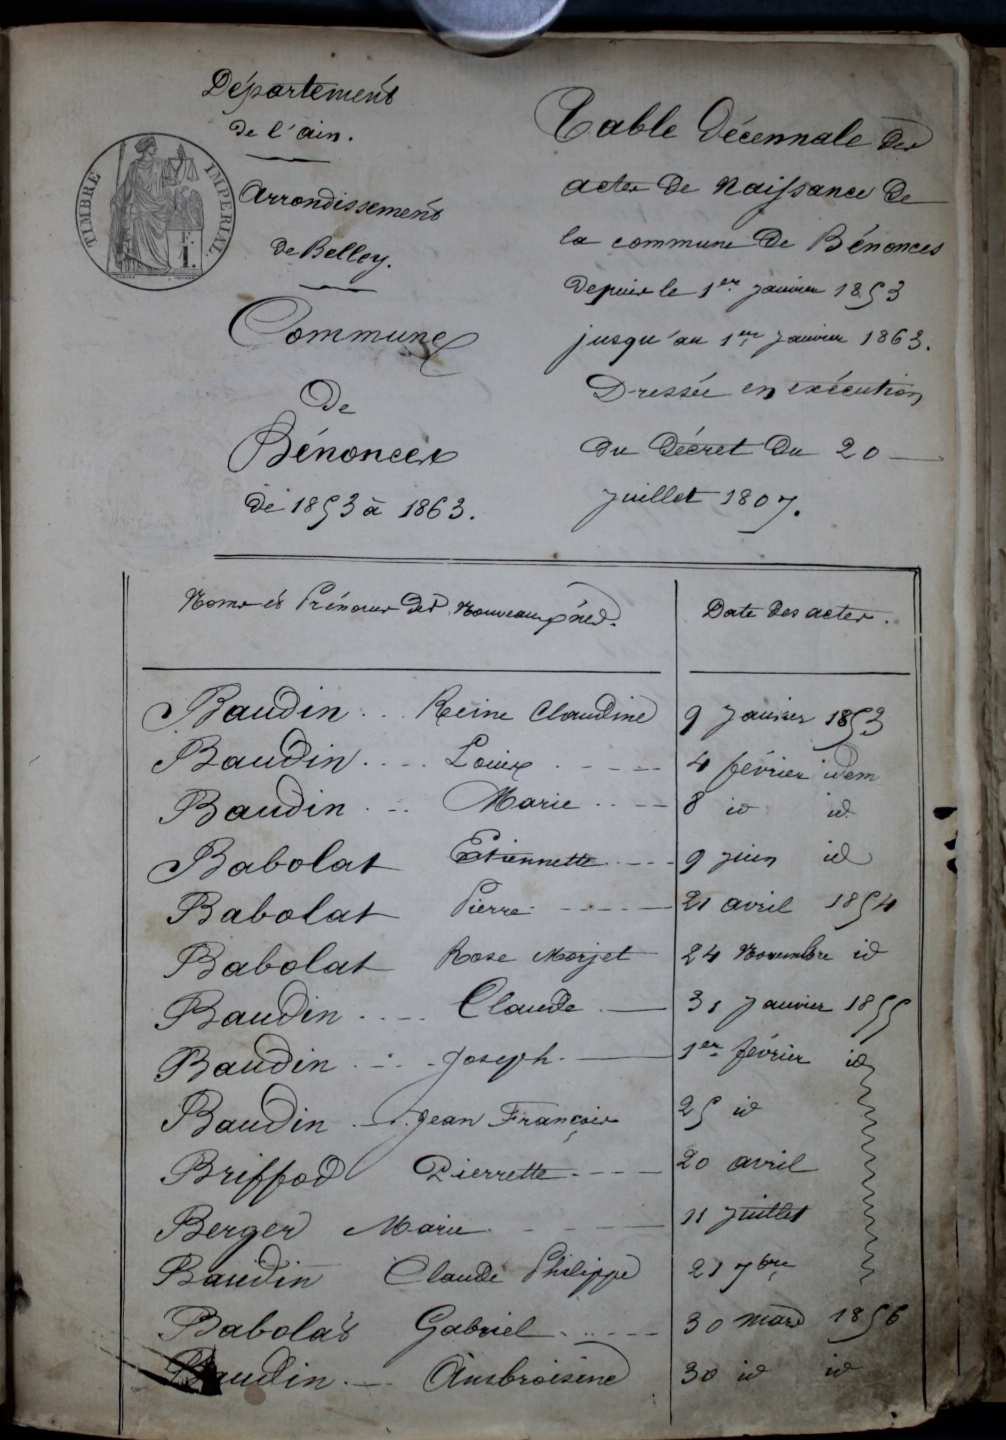 Département
de l'ain.
TIMBRE IMPERIAL
Arrondissement
de Belley.
Commune
de
Bénonces
de 1853 à 1863.
Table Décennale des
actes de Naissance de
la commune de Bénonces
depuis le 1er Janvier 1853
jusqu'au 1er Janvier 1863.
Dressée en exécution
du Décret du 20
Juillet 1807.
Noms et Prénoms des Nouveaux nés. Date des actes.
Baudin Reine Claudine 9 Janvier 1853
Baudin Louis 4 février idem
Baudin Marie 8 id id
Babolat Etiennette 9 juin id
Babolat Pierre 21 avril 1854
Babolat Rose Morjet 24 Novembre id
Baudin Claude 31 Janvier 1855
Baudin Joseph 1er février id
Baudin Jean François 25 id
Briffod Pierrette 20 avril
Berger Marie 11 Juillet
Baudin Claude Philippe 21 7bre
Babolat Gabriel 30 mars 1856
Baudin Ambroisine 30 id id